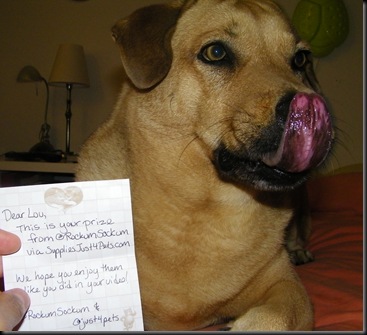 Dear Lou,
This is your prize
from @RockumSockum
via SuppliesJust4Pets.com
We hope you enjoy them
like you did in your video!
RockumSockum &
@just4pets